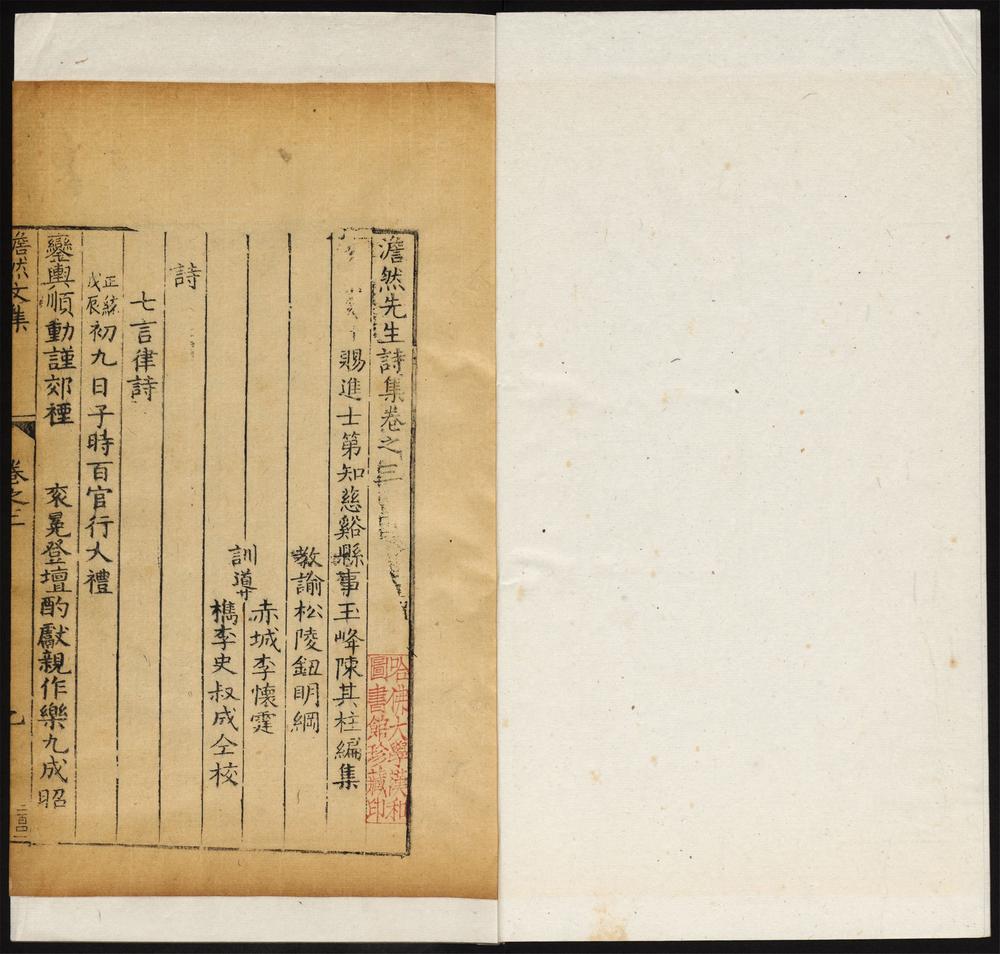 澹然先生詩集卷之三
賜進士第知慈谿縣事玉峰陳其柱編集
教諭松陵鈕明綱
訓導
赤城李懷霆
檇李史叔成仝校
詩
七言律詩
正統戊辰初九日子時百官行大禮
鑾輿順動謹郊禋 衮冕登壇酌獻親作樂九成昭
澹然文集 卷之三
哈佛大學漢和
圖書館珍藏印